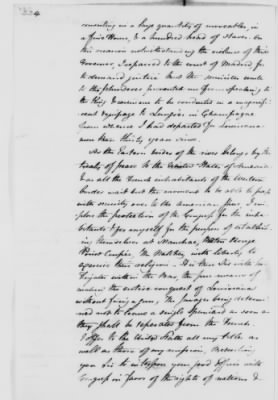 334
consisting in a large quantity of moveables, in
a fine House, & a hundred head of Slaves. On
this reason notwithstanding the violence of this
Governor, I repaired to the court of Madrid
to demand justice but the minister
prevented me from speaking to
the King & caused me to be conducted in a
equipage to Langres in Champagne
from whence I had departed for Louisiana
more than thirty years since.
As the Eastern side of the river belongs by the
treaty of peace to the United States of America
& as all the french inhabitants of the Western
side wait but the moment to be able to pass
with security over to the American side, I im-
plore the protection of the Congress for the inha-
bitants & for myself for the purpose of establish-
ing themselves at Manchac, Baton Rouge
Point Coupée, The Natchez, with liberty to
exercise their religion.
within the the sure means of
making the entire conquest of Louisiana
without firing a gun, the Savages being determi-
ned not to leave a single Spaniard as soon as
they shall be separated from the French.
I offer to the United States all my as
well as those of my
you Sir to interpose your good offices with
Congress in favor of the rights of nations &